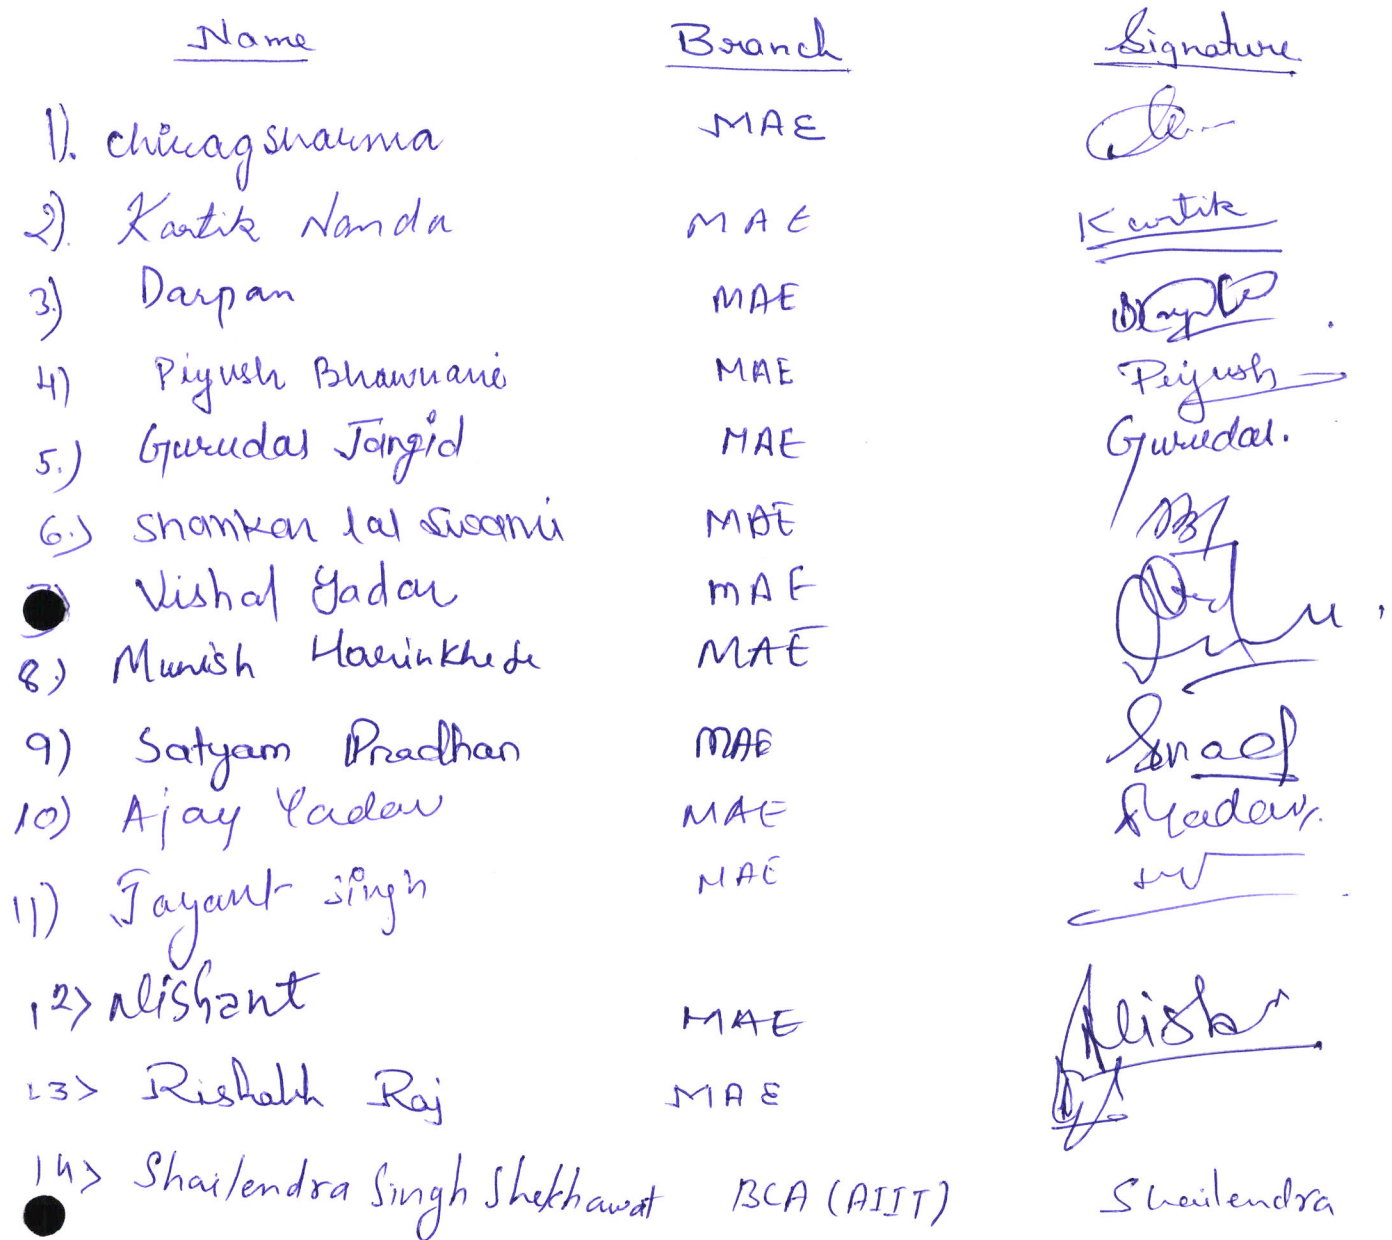 Name Branch Signature
1). chirag sharma MAE
2). Kartik Nanda MAE Kartik
3.) Darpan MAE
4) Piyush Bhawnani MAE Piyush
5.) Gurudas Jangid MAE Gurudas.
6.) Shankar lal Swami MAE
Vishal Yadav MAE
8.) Munish Harinkhede MAE
9) Satyam Pradhan MAE
10) Ajay Yadav MAE AYadav
11) Jayant Singh MAE
12> Nishant MAE
13> Rishabh Raj MAE
14> Shailendra Singh Shekhawat BCA (AIIT) Shailendra